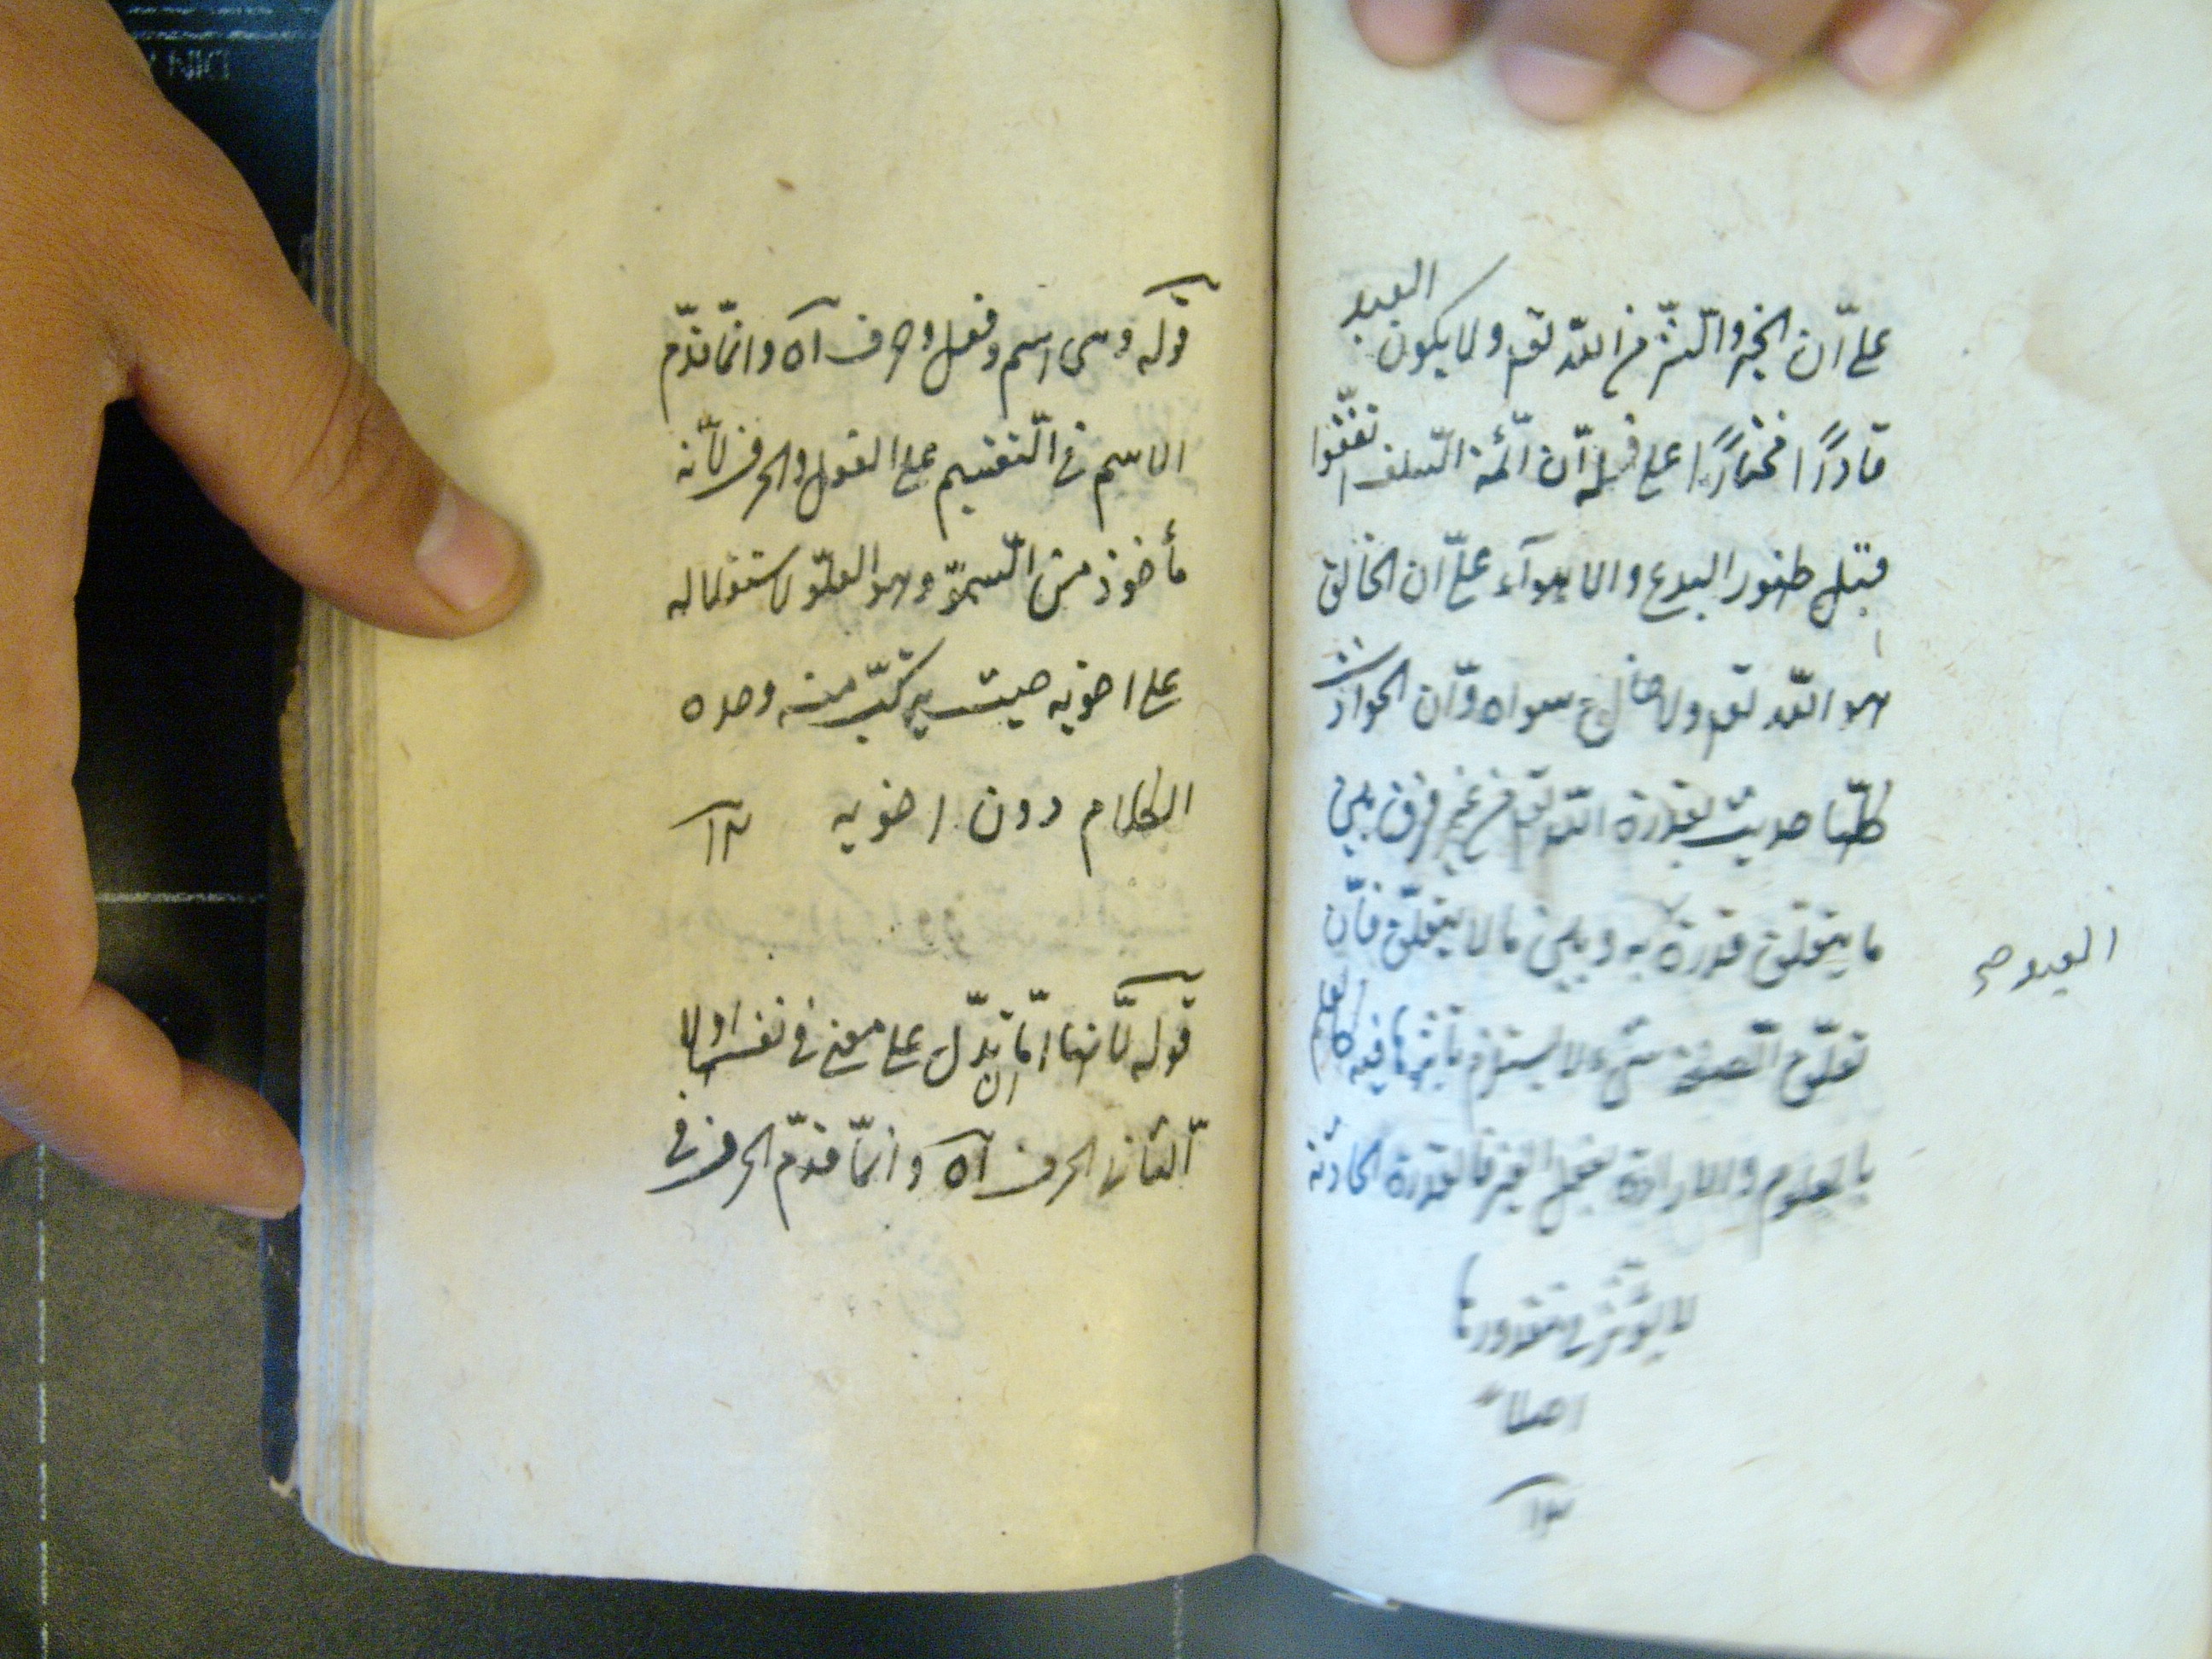 على أن الخير والشر من الله تعم ولا يكون العبد
قادرًا مختارًا على فعله أن أئمة السلف اتفقوا
قبل ظهور البدع والاهوآء على أن الخالق
هو الله تعم ولا خالق سواه وأن الحوادث
كلها حديث بقدرة الله تعم من غير فرق بين
ما يتعلق قدرة به وبين ما لا يتعلق فأن
العبد صح
تعلق الصفة بشىء لا يستلزم تأثيرها فيه كالعلم
بالمعلوم والارادة بفعل الغير فالقدرة الحادثة
لا يؤثر في مقدورها
اصلا
١٢
قوله وهى اسم وفعل وحرف آه وانما قدّم
الاسم فى التقسيم على الفعل والحرف لأنه
مأخوذ من السموّ وهو العلوّ لاستعلائه
على اخويه حيث يتركّب منه وحده
الكلام دون اخويه ١٢
قوله لأنها امّا ان تدلّ على معنى فى نفسها اولا
الثانى الحرف آه وانما قدّم الحرف فى